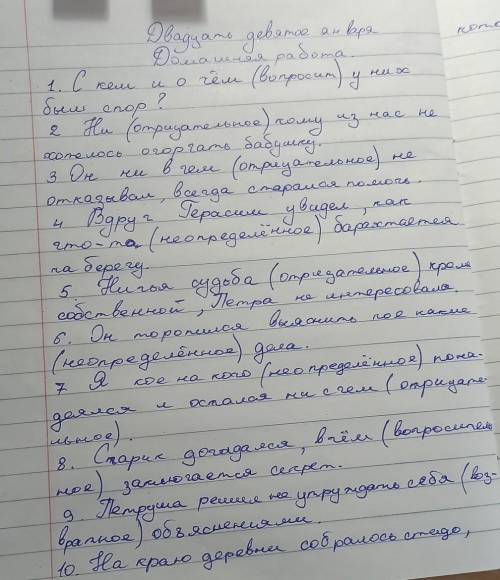 Двадцать девятое января
Домашняя работа.
1. С кем и о чём (вопросит) у них
был спор?
2 Ни (отрицательное) кому из нас не
хотелось огорчать бабушку.
3. Он ни в чем (отрицательное) не
отказывал, всегда старался помочь.
4 Вдруг Герасим увидел, как
что-то (неопределённое) барахтается
на берегу.
5 Ничья судьба (отрицательное) кроме
собственной, Петра не интересовала.
6. Он торопился выяснить кое какие
(неопределённое) дела.
7 Я кое на кого (неопределённое) пона-
деялся и остался ни с чем (отрицате-
льное).
8. Старик догадался, в чём (вопроситель
ное) заключается секрет.
9. Петруша решил не утруждать себя (воз-
вратное) объяснениями.
10. На краю деревни собралось стадо,